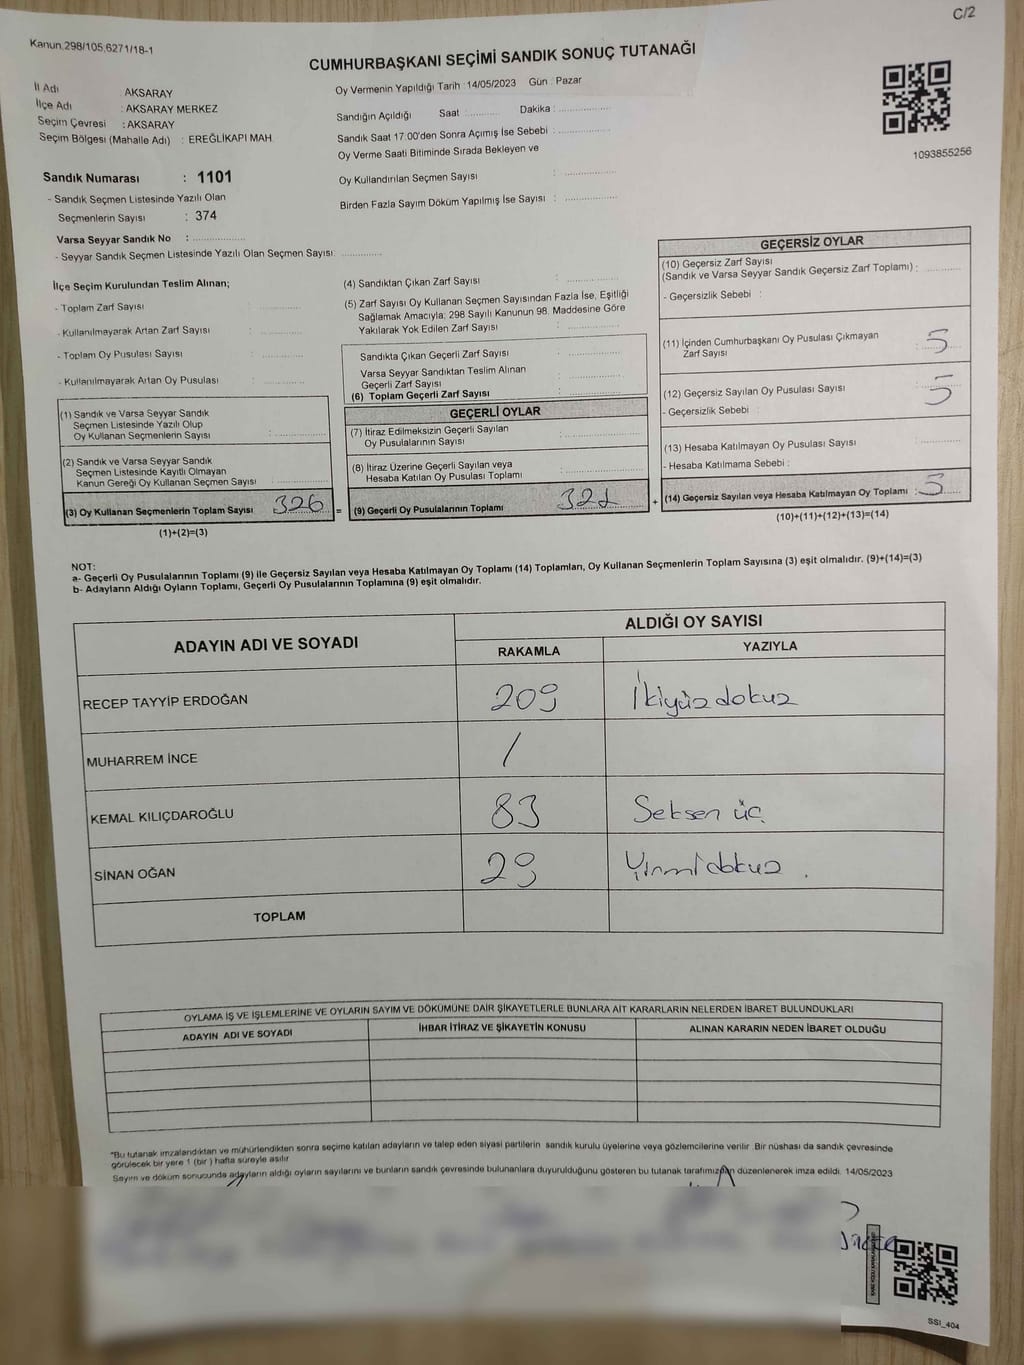 C/2
Kanun.298/105,6271/18-1
CUMHURBAŞKANI SEÇİMİ SANDIK SONUÇ TUTANAĞI
İl Adı : AKSARAY
İlçe Adı : AKSARAY MERKEZ
Seçim Çevresi : AKSARAY
Seçim Bölgesi (Mahalle Adı) : EREĞLİKAPI MAH
Sandık Numarası : 1101
- Sandık Seçmen Listesinde Yazılı Olan
Seçmenlerin Sayısı : 374
Varsa Seyyar Sandık No : ..................
- Seyyar Sandık Seçmen Listesinde Yazılı Olan Seçmen Sayısı: ..............
Oy Vermenin Yapıldığı Tarih :14/05/2023 Gün : Pazar
Sandığın Açıldığı Saat : ............ Dakika : ..................
Sandık Saat 17:00'den Sonra Açımış İse Sebebi : ..................
Oy Verme Saati Bitiminde Sırada Bekleyen ve
Oy Kullandırılan Seçmen Sayısı : ..................
Birden Fazla Sayım Döküm Yapılmış İse Sayısı : ..................
1093855256
İlçe Seçim Kurulundan Teslim Alınan;
- Toplam Zarf Sayısı : ..............
- Kullanılmayarak Artan Zarf Sayısı : ..............
- Toplam Oy Pusulası Sayısı : ..............
- Kullanılmayarak Artan Oy Pusulası : ..............
(1) Sandık ve Varsa Seyyar Sandık
Seçmen Listesinde Yazılı Olup
Oy Kullanan Seçmenlerin Sayısı : ..................
(2) Sandık ve Varsa Seyyar Sandık
Seçmen Listesinde Kayıtlı Olmayan
Kanun Gereği Oy Kullanan Seçmen Sayısı : ..............
(3) Oy Kullanan Seçmenlerin Toplam Sayısı : 326
(1)+(2)=(3)
(4) Sandıktan Çıkan Zarf Sayısı : ..............
(5) Zarf Sayısı Oy Kullanan Seçmen Sayısından Fazla İse, Eşitliği
Sağlamak Amacıyla; 298 Sayılı Kanunun 98. Maddesine Göre
Yakılarak Yok Edilen Zarf Sayısı : ..............
Sandıkta Çıkan Geçerli Zarf Sayısı : ..............
Varsa Seyyar Sandıktan Teslim Alınan
Geçerli Zarf Sayısı : ..............
(6) Toplam Geçerli Zarf Sayısı : ..............
GEÇERLİ OYLAR
(7) İtiraz Edilmeksizin Geçerli Sayılan
Oy Pusulalarının Sayısı : ..................
(8) İtiraz Üzerine Geçerli Sayılan veya
Hesaba Katılan Oy Pusulası Toplamı : ..................
= (9) Geçerli Oy Pusulalarının Toplamı : 321
GEÇERSİZ OYLAR
(10) Geçersiz Zarf Sayısı
(Sandık ve Varsa Seyyar Sandık Geçersiz Zarf Toplamı) : ............
- Geçersizlik Sebebi :
(11) İçinden Cumhurbaşkanı Oy Pusulası Çıkmayan
Zarf Sayısı : 5
(12) Geçersiz Sayılan Oy Pusulası Sayısı : 5
- Geçersizlik Sebebi :
(13) Hesaba Katılmayan Oy Pusulası Sayısı : ............
- Hesaba Katılmama Sebebi :
+ (14) Geçersiz Sayılan veya Hesaba Katılmayan Oy Toplamı : 5
(10)+(11)+(12)+(13)=(14)
NOT:
a- Geçerli Oy Pusulalarının Toplamı (9) ile Geçersiz Sayılan veya Hesaba Katılmayan Oy Toplamı (14) Toplamları, Oy Kullanan Seçmenlerin Toplam Sayısına (3) eşit olmalıdır. (9)+(14)=(3)
b- Adayların Aldığı Oyların Toplamı, Geçerli Oy Pusulalarının Toplamına (9) eşit olmalıdır.
ADAYIN ADI VE SOYADI ALDIĞI OY SAYISI
RAKAMLA YAZIYLA
RECEP TAYYİP ERDOĞAN 209 İkiyüz dokuz
MUHARREM İNCE /
KEMAL KILIÇDAROĞLU 83 Seksen üç
SİNAN OĞAN 29 Yirmi dokuz .
TOPLAM
OYLAMA İŞ VE İŞLEMLERİNE VE OYLARIN SAYIM VE DÖKÜMÜNE DAİR ŞİKAYETLERLE BUNLARA AİT KARARLARIN NELERDEN İBARET BULUNDUKLARI
ADAYIN ADI VE SOYADI İHBAR İTİRAZ VE ŞİKAYETİN KONUSU ALINAN KARARIN NEDEN İBARET OLDUĞU
"Bu tutanak imzalandıktan ve mühürlendikten sonra seçime katılan adayların ve talep eden siyasi partilerin sandık kurulu üyelerine veya gözlemcilerine verilir. Bir nüshası da sandık çevresinde
görülecek bir yere 1 (bir) hafta süreyle asılır
Sayım ve döküm sonucunda adayların aldığı oyların sayılarını ve bunların sandık çevresinde bulunanlara duyurulduğunu gösteren bu tutanak tarafımızdan düzenlenerek imza edildi. 14/05/2023
SSI_404